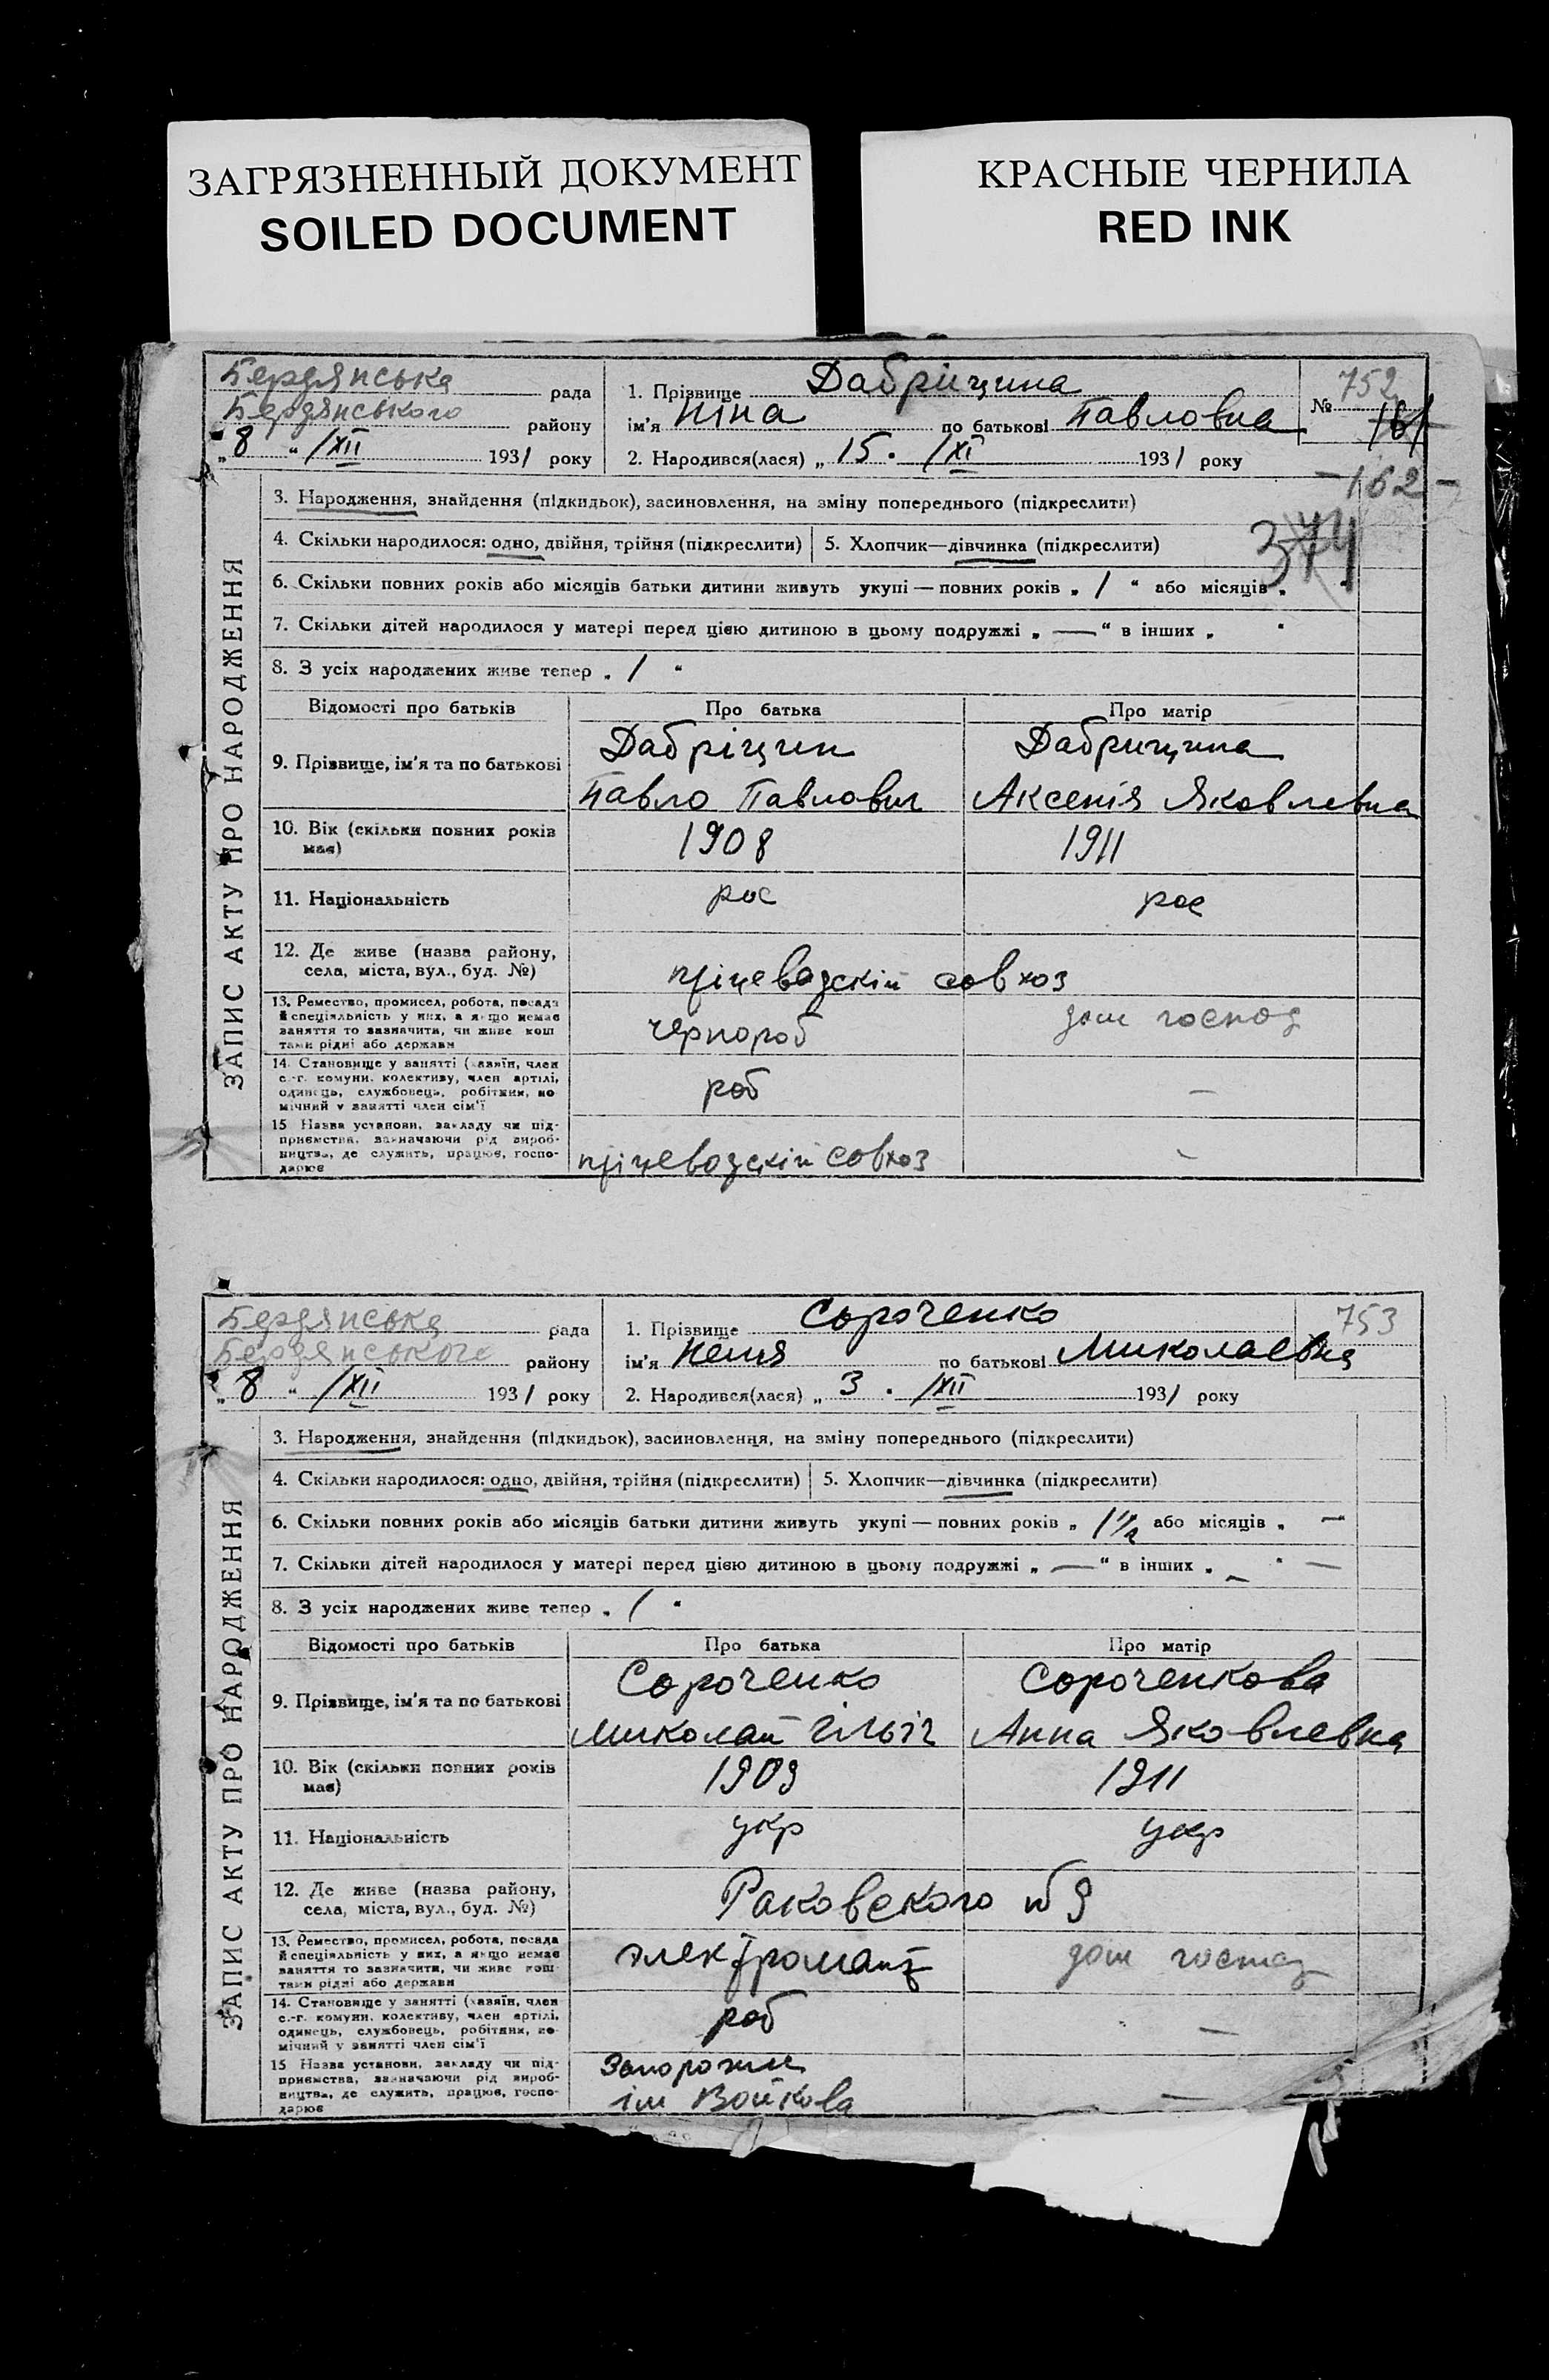 ЗАГРЯЗНЕННЫЙ ДОКУМЕНТ
SOILED DOCUMENT
КРАСНЫЕ ЧЕРНИЛА
RED INK
ЗАПИС АКТУ ПРО НАРОДЖЕННЯ
Бердянська рада
Бердянського району
„8 “ /XII 1931 року
1. Прізвище Дабріщина
ім'я Ніна по батькові Павловна
2. Народився(лася) „ 15 . /XI 1931 року
№ 752
161
-162-
374
3. Народження, знайдення (підкидьок), засиновлення, на зміну попереднього (підкреслити)
4. Скільки народилося: одно, двійня, трійня (підкреслити) 5. Хлопчик—дівчинка (підкреслити)
6. Скільки повних років або місяців батьки дитини живуть укупі — повних років „ 1 “ або місяців „
7. Скільки дітей народилося у матері перед цією дитиною в цьому подружжі „ — “ в інших „ “
8. З усіх народжених живе тепер „ 1 “
Відомості про батьків Про батька Про матір
9. Прізвище, ім'я та по батькові Дабріщин Дабрищина
Павло Павлович Аксенія Яковлевна
10. Вік (скільки повних років має) 1908 1911
11. Національність рос рос
12. Де живе (назва району,
села, міста, вул., буд. №) совхоз
13. Ремество, промисел, робота, посада
й спеціяльність у них, а якщо немає
заняття то зазначити, чи живе кош
тами рідні або держави
чорнороб дом господ
14. Становище у занятті (хазяїн, член
с.-г. комуни, колективу, член артілі,
одинець, службовець, робітник, по
мічний у занятті член сім'ї
роб —
15 Назва установи, закладу чи під-
приємства, зазначаючи рід вироб-
ництва, де служить, працює, госпо-
дарює
совхоз -
ЗАПИС АКТУ ПРО НАРОДЖЕННЯ
Бердянська рада
Бердянського району
„8 “ /XII 1931 року
1. Прізвище Сороченко
ім'я по батькові Миколаевна
2. Народився(лася) „ 3 . /XII 1931 року
753
3. Народження, знайдення (підкидьок), засиновлення, на зміну попереднього (підкреслити)
4. Скільки народилося: одно, двійня, трійня (підкреслити) 5. Хлопчик—дівчинка (підкреслити)
6. Скільки повних років або місяців батьки дитини живуть укупі — повних років „ 1 1/2 або місяців „ —
7. Скільки дітей народилося у матері перед цією дитиною в цьому подружжі „ — “ в інших „ — “ —
8. З усіх народжених живе тепер „ 1 “
Відомості про батьків Про батька Про матір
9. Прізвище, ім'я та по батькові Сороченко Сороченкова
Миколай Ільіч Анна Яковлевна
10. Вік (скільки повних років має) 1909 1911
11. Національність укр укр
12. Де живе (назва району,
села, міста, вул., буд. №) Раковского № 9
13. Ремество, промисел, робота, посада
й спеціяльність у них, а якщо немає
заняття то зазначити, чи живе кош-
тами рідні або держави
электромонт дом господ
14. Становище у занятті (хазяїн, член
с.-г. комуни, колективу, член артілі,
одинець, службовець, робітник, по-
мічний у занятті член сім'ї
роб —
15 Назва установи, закладу чи під-
приємства, зазначаючи рід вироб-
ництва, де служить, працює, госпо-
дарює
Запорожжя
ім Войкова —